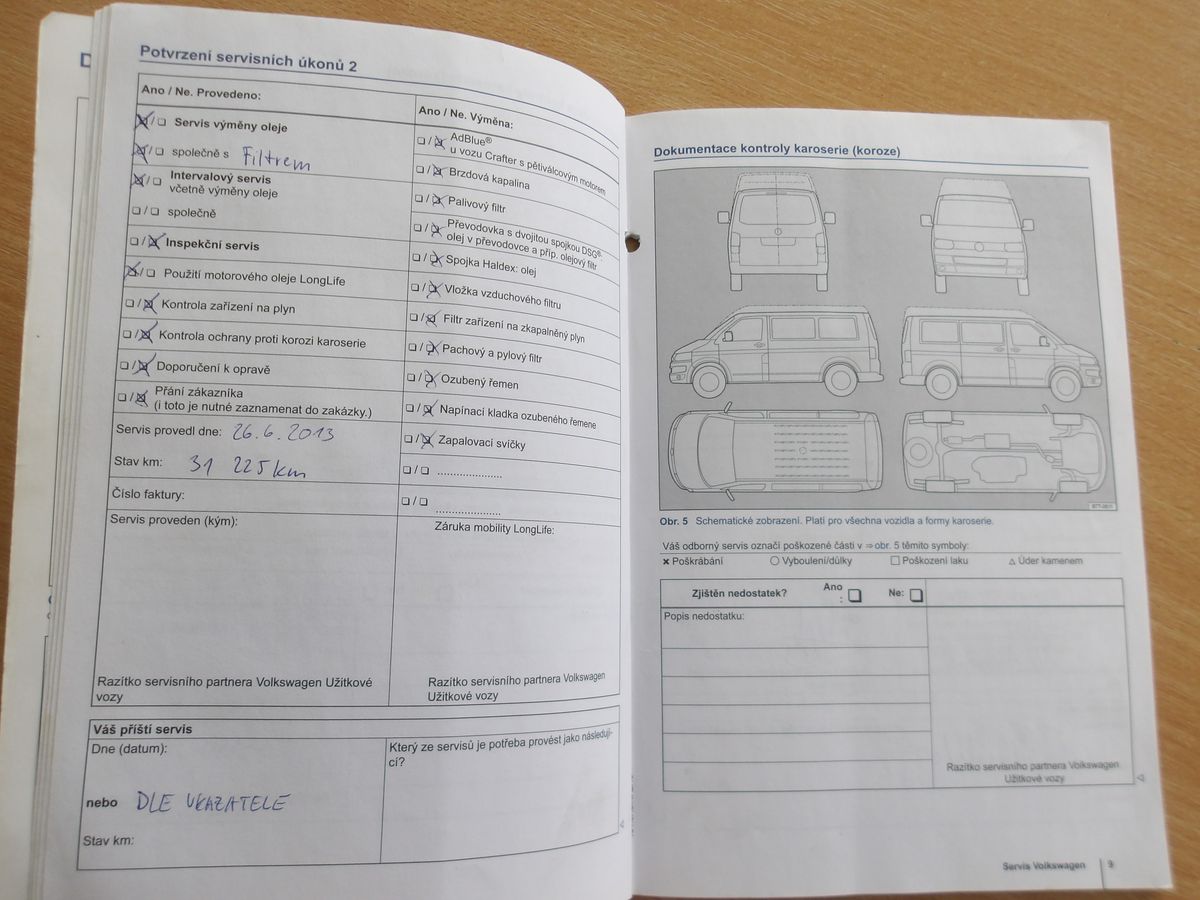 D
Potvrzení servisních úkonů 2
Ano / Ne. Provedeno:
☒/☐ Servis výměny oleje
☒/☐ společně s Filtrem
☒/☐ Intervalový servis
včetně výměny oleje
☐/☐ společně
☐/☒ Inspekční servis
☒/☐ Použití motorového oleje LongLife
☐/☒ Kontrola zařízení na plyn
☐/☒ Kontrola ochrany proti korozi karoserie
☐/☒ Doporučení k opravě
☐/☒ Přání zákazníka
(i toto je nutné zaznamenat do zakázky.)
Servis provedl dne: 26.6.2013
Stav km: 31 225km
Číslo faktury:
Servis proveden (kým):
Razítko servisního partnera Volkswagen Užitkové
vozy
Ano / Ne. Výměna:
☐/☒ AdBlue®
u vozu Crafter s pětiválcovým motorem
☐/☒ Brzdová kapalina
☐/☒ Palivový filtr
☐/☒ Převodovka s dvojitou spojkou DSG®:
olej v převodovce a příp. olejový filtr
☐/☒ Spojka Haldex: olej
☐/☒ Vložka vzduchového filtru
☐/☒ Filtr zařízení na zkapalněný plyn
☐/☒ Pachový a pylový filtr
☐/☒ Ozubený řemen
☐/☒ Napínací kladka ozubeného řemene
☐/☒ Zapalovací svíčky
☐/☐ ....................
☐/☐ ....................
Záruka mobility LongLife:
Razítko servisního partnera Volkswagen
Užitkové vozy
Váš příští servis
Dne (datum):
nebo DLE UKAZATELE
Stav km:
Který ze servisů je potřeba provést jako následují-
cí?
Dokumentace kontroly karoserie (koroze)
Obr. 5 Schematické zobrazení. Platí pro všechna vozidla a formy karoserie.
Váš odborný servis označí poškozené části v ⇒obr. 5 těmito symboly:
× Poškrábání ○ Vyboulení/důlky □ Poškození laku △ Úder kamenem
Zjištěn nedostatek? Ano
: ☐ Ne: ☐
Popis nedostatku:
Razítko servisního partnera Volkswagen
Užitkové vozy
Servis Volkswagen 9